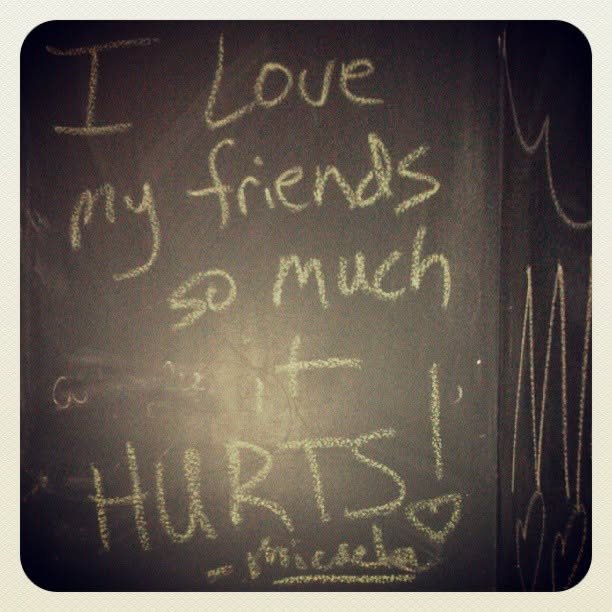 I Love
my friends
so much
it
HURTS!
- Micaela